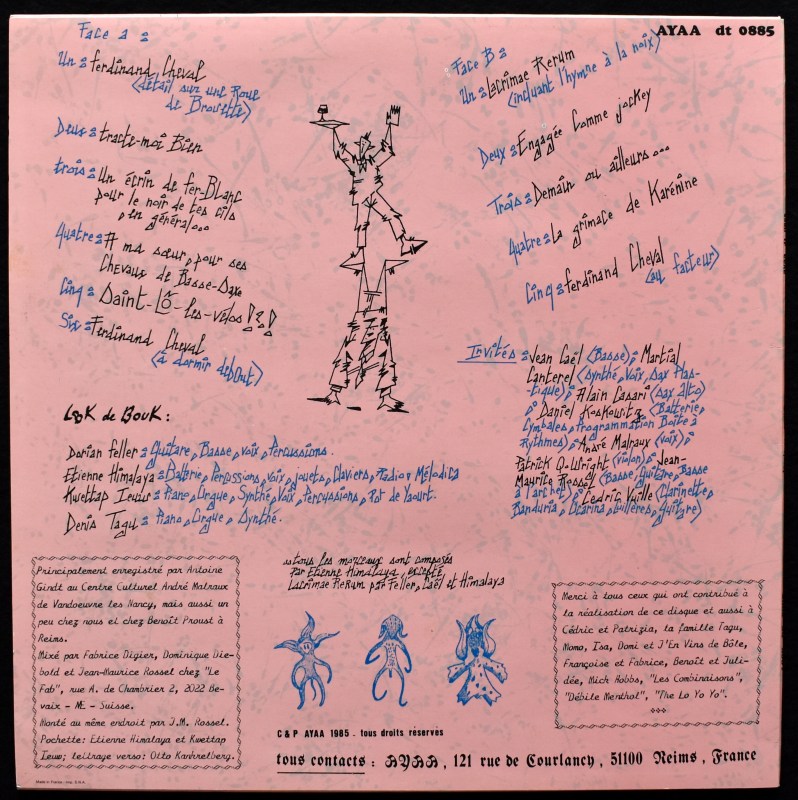 AYAA dt 0885
Face a :
Un : Ferdinand Cheval
(détail sur une Roue
de Brouette)
Deux : tracte-moi Bien
trois : Un écrin de fer-Blanc
pour le noir de tes cils
, en général...
Quatre : A ma sœur, pour ses
Chevaux de Basse-Saxe
Cinq : Saint-Lô-les-vélos !?!
Six : Ferdinand Cheval
(à dormir debOut)
Face B :
Un : Lacrimae Rerum
(incluant l'hymne à la noix)
Deux : Engagée Comme jockey
Trois : Demain ou ailleurs...
Quatre : La grimace de Karénine
Cinq : Ferdinand Cheval
(au facteur)
LooK de BouK :
Dorian Feller : Guitare, Basse, voix, Percussions.
Etienne Himalaya : Batterie, Percussions, voix, jouets, Claviers, Radio, Mélodica
Kwettap Ieuw : Piano, Orgue, Synthé, Voix, Percussions, Pot de Yaourt.
Denis Tagu : Piano, Orgue, Synthé.
Invités : Jean Gaël (Basse), Martial
Canterel (Synthé, Voix, Sax Plas-
tique) ; Alain Casari (Sax alto)
; Daniel Koskowitz (Batterie,
Cymbales, Programmation Boîte à
Rythmes) ; André Malraux (voix) ;
Patrick Q. Wright (violon) ; Jean-
Maurice Rossel (Basse, Guitare, Basse
à l'archet) ; Cédric Vuille (Clarinette,
Banduria, Ocarina, Cuillères, Guitare)
Principalement enregistré par Antoine
Gindt au Centre Culturel André Malraux
de Vandoeuvre les Nancy, mais aussi un
peu chez nous et chez Benoît Proust à
Reims.
Mixé par Fabrice Digier, Dominique Die-
bold et Jean-Maurice Rossel chez "Le
Fab", rue A. de Chambrier 2, 2022 Be-
vaix - NE - Suisse.
Monté au même endroit par J.M. Rossel.
Pochette: Etienne Himalaya et Kwettap
Ieuw; lettrage verso: Otto Kanhrelberg.
Tous les morceaux sont composés
Par Etienne Himalaya, excepté
Lacrimae ReRum par Feller, Gaël et Himalaya
Merci à tous ceux qui ont contribué à
la réalisation de ce disque et aussi à
Cédric et Patrizia, la famille Tagu,
Momo, Isa, Domi et J'En Vins de Bôle,
Françoise et Fabrice, Benoît et Juli-
dée, Mick Hobbs, "Les Combinaisons",
"Débile Menthol", "The Lo Yo Yo".
C & P AYAA 1985 - tous droits réservés
tous contacts : AYAA, 121 rue de Courlancy, 51100 Reims, France
Made in France